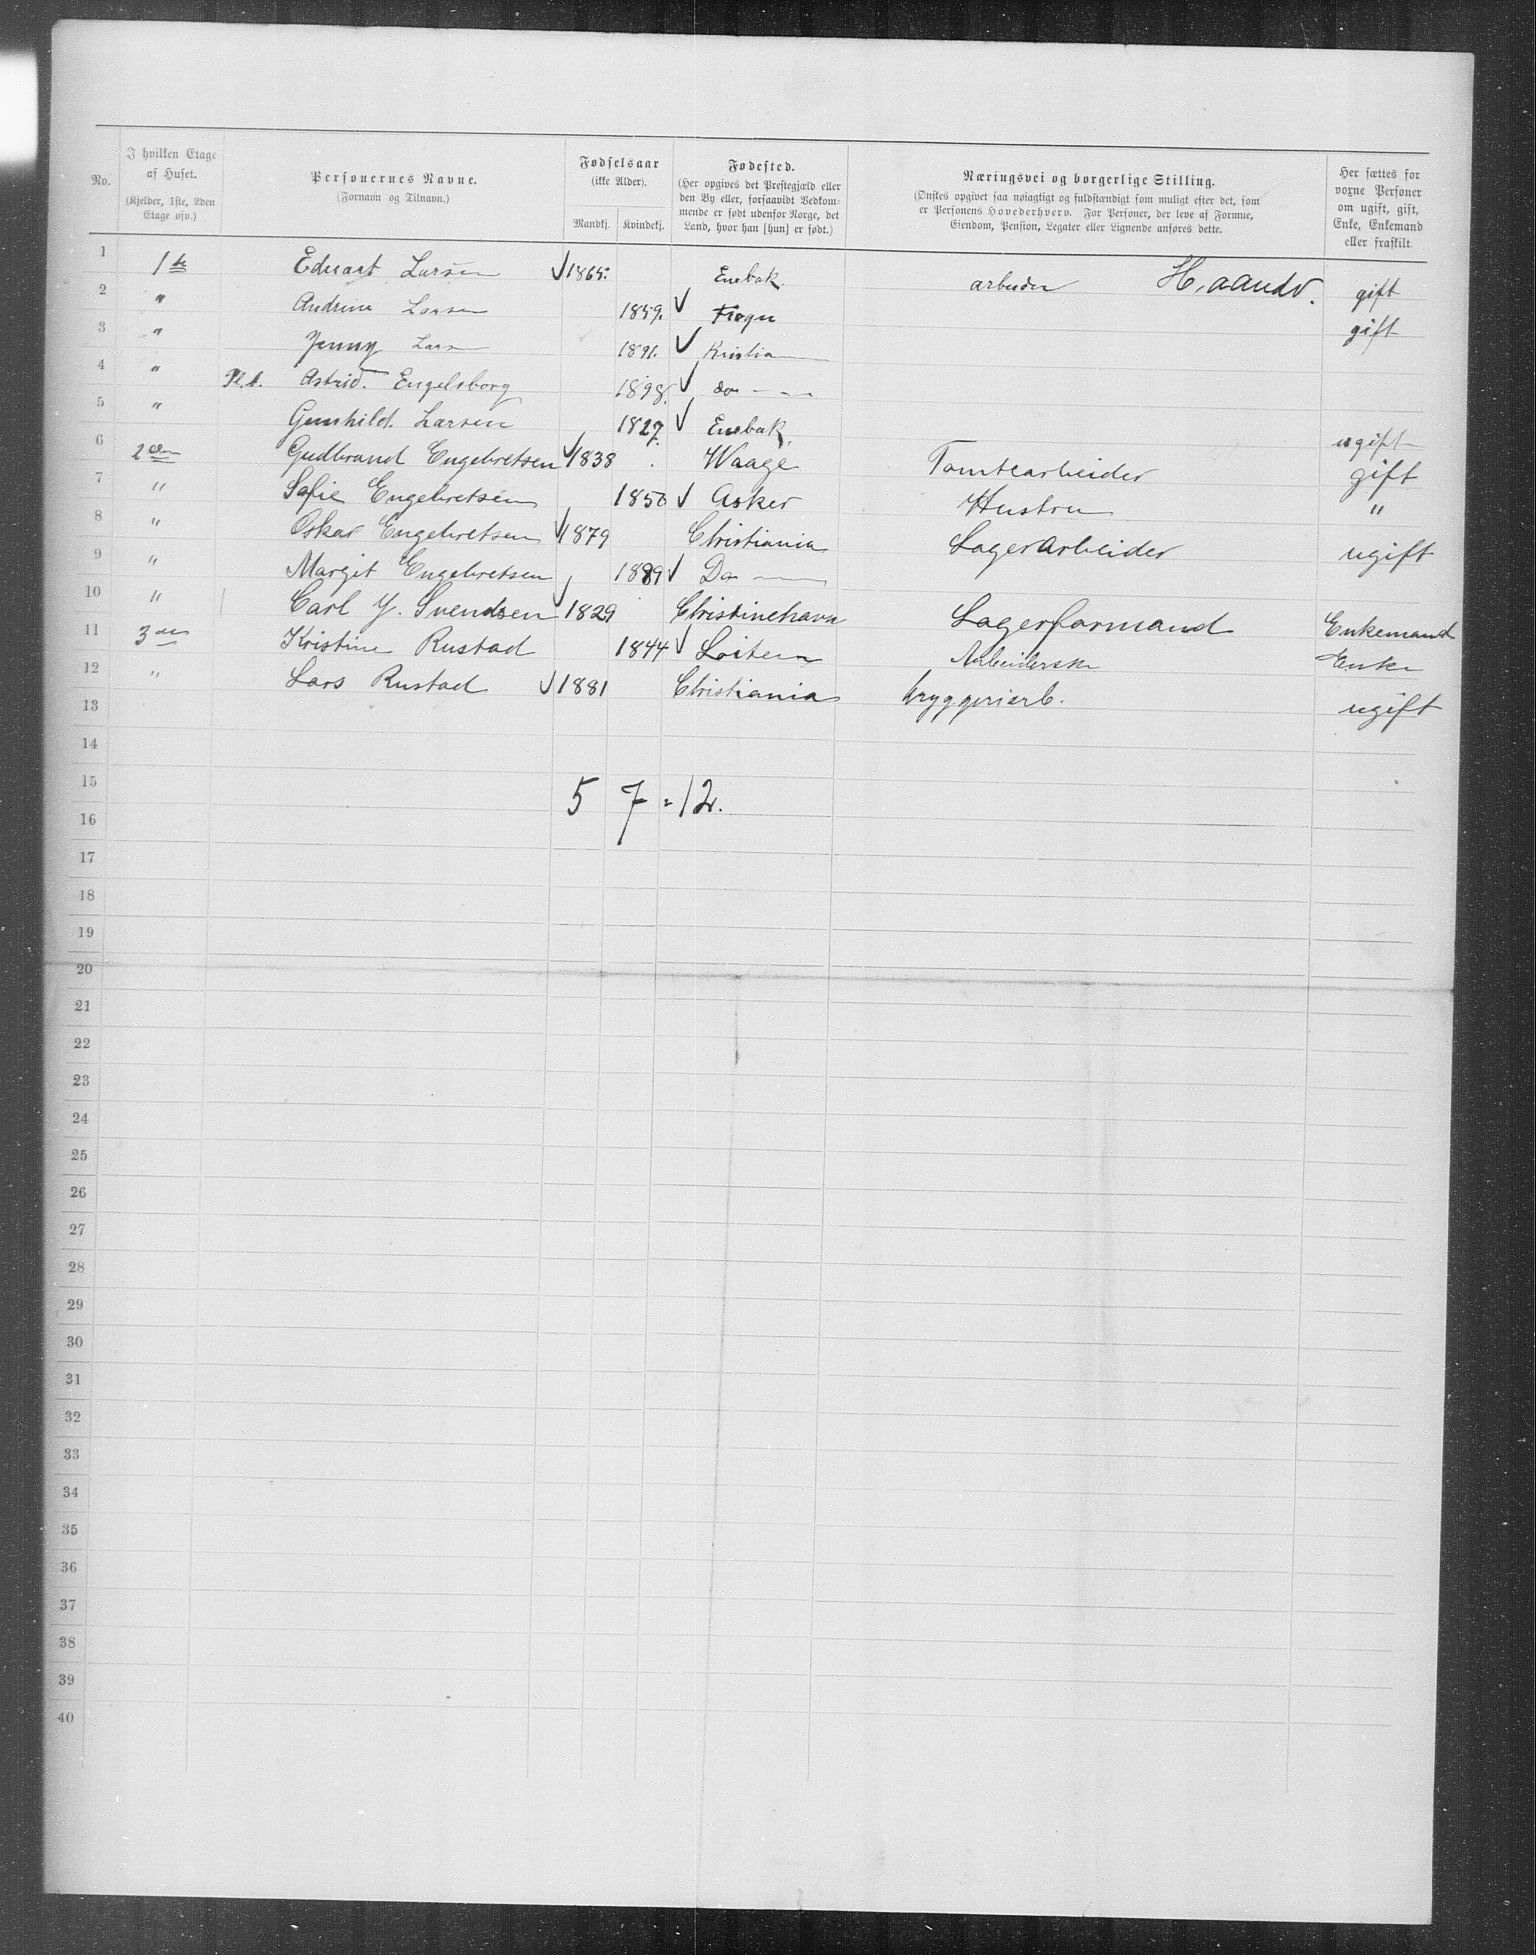 No.
I hvilken Etage af Huset.
(Kjelder, 1ste, 2den Etage osv.)
Personernes Navne.
(Fornavn og Tilnavn.)
Fødselsaar
(ikke Alder).
Mandkj. Kvindekj.
Fødested.
(Her opgives det Prestegjæld eller den By eller, forsaavidt Vedkommende er født udenfor Norge, det Land, hvor han [hun] er født.)
Næringsvei og borgerlige Stilling.
(Ønskes opgivet saa nøiagtigt og fuldstændigt som muligt efter det, som er Personens Hovederhverv. For Personer, der leve af Formue, Eiendom, Pension, Legater eller Lignende anføres dette.
Her sættes for voxne Personer om ugift, gift, Enke, Enkemand eller fraskilt
1 1ste Eduart Larsen √ 1865. Enebak. arbeider H. aandv. gift
2 " Andrine Larsen 1859. √ Frogn gift
3 " Jenny Larsen 1891. √ Kristia
4 " Pl. b. Astrid. Engelsborg 1898. √ do —
5 " Gunhild. Larsen 1827. √ Enebak. ugift
6 2den Gudbrand Engebretsen √ 1838 Waage Tomtearbeider gift
7 " Sofie Engebretsen 1850 √ Asker Hustru "
8 " Oskar Engebretsen √ 1879 Christiania Lagerarbeider ugift
9 " Margit Engebretsen 1889 √ Do —
10 " Carl J. Svendsen √ 1829 Christinehavn Lagerformand Enkemand
11 3die Kristine Rustad 1844 √ Løiten Arbeiderske Enke
12 " Lars Rustad √ 1881 Christiania bryggeriarb. ugift
13
14
15
5 7 = 12.
16
17
18
19
20
21
22
23
24
25
26
27
28
29
30
31
32
33
34
35
36
37
38
39
40